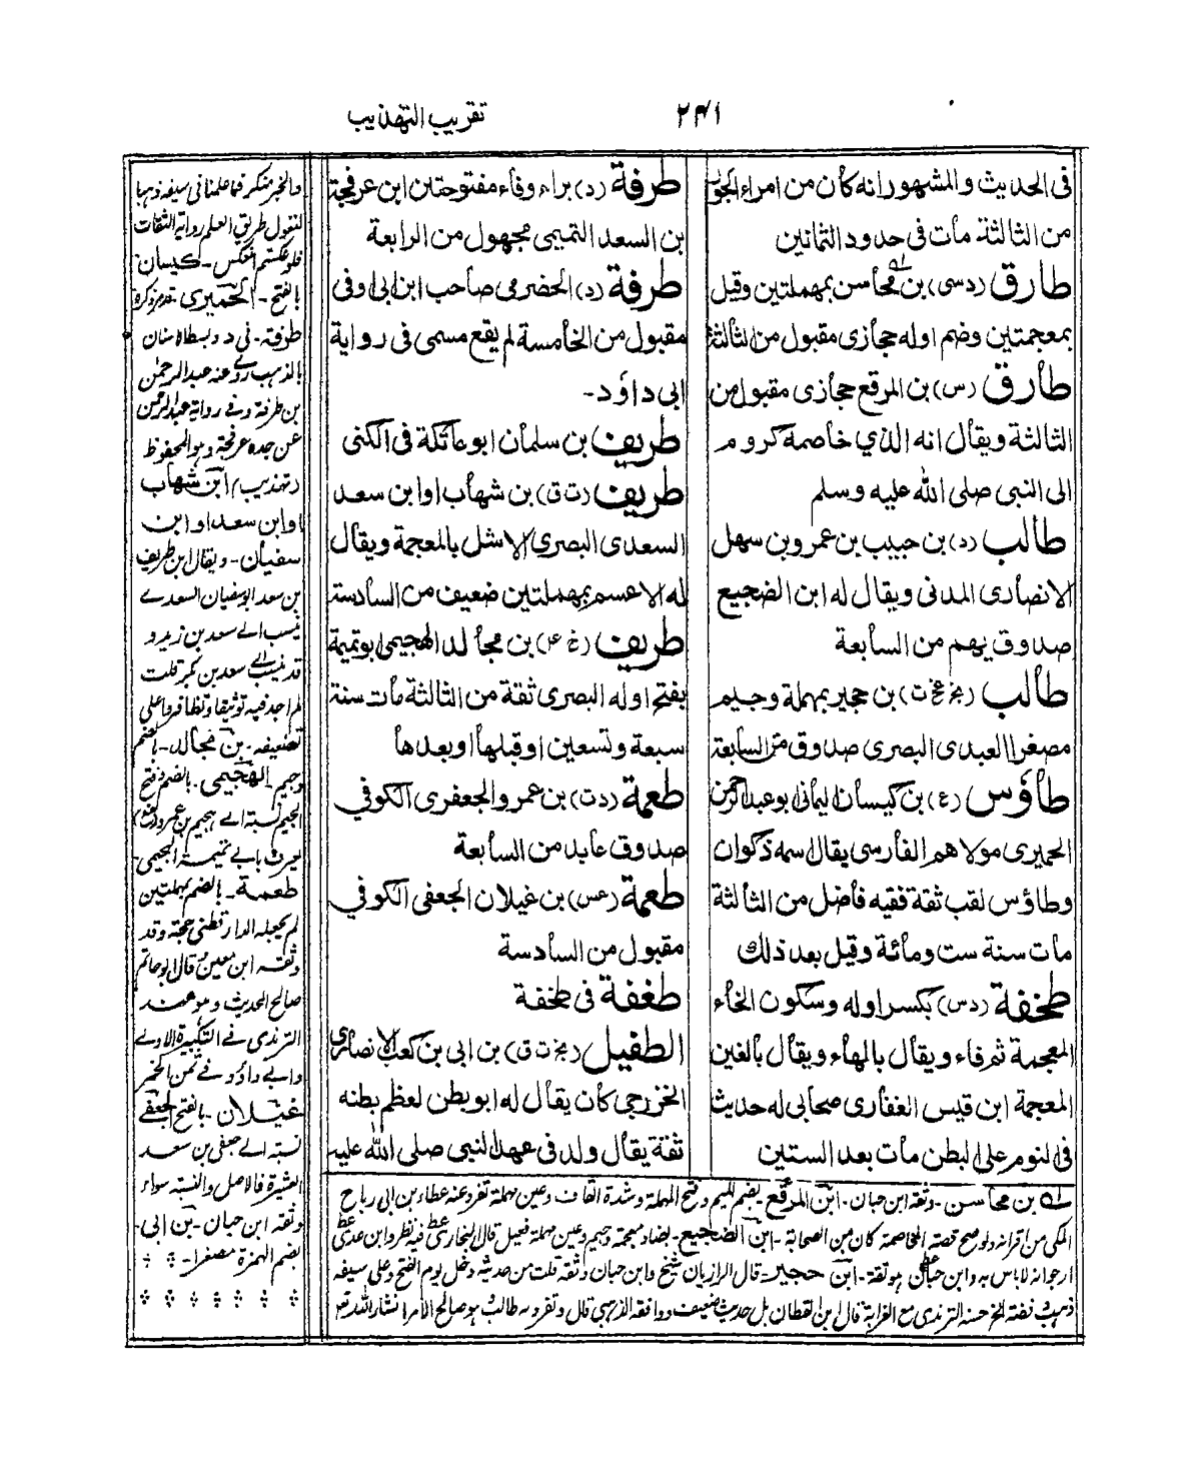 ۲۴۱
تقريب التهذيب
فى الحديث والمشهور انه كان من امراء الجور
من الثالثة مات فى حدود الثمانين
طارق (دسى) بن محاسن بمهملتين وقيل
بمعجمتين وضم اوله حجازى مقبول من الثالثة
طارق (س) بن المرقع حجازى مقبول من
الثالثة ويقال انه الذي خاصمه كروم
الى النبى صلى الله عليه وسلم
طالب (د) بن حبيب بن عمرو بن سهل
الانصارى المدنى ويقال له ابن الضجيع
صدوق يهم من السابعة
طالب (بخ عخ ت) بن حجير بمهملة وجيم
مصغرا العبدى البصرى صدوق من السابعة
طاؤس (ع) بن كيسان اليمانى ابو عبد الرحمن
الحميرى مولاهم الفارسى يقال اسمه ذكوان
وطاؤس لقب ثقة فقيه فاضل من الثالثة
مات سنة ست ومائة وقيل بعد ذلك
طخفة (دس) بكسر اوله وسكون الخاء
المعجمة ثم فاء ويقال بالهاء ويقال بالغين
المعجمة ابن قيس الغفارى صحابى له حديث
فى النوم على البطن مات بعد الستين
طرفة (د) براء وفاء مفتوحتان ابن عرفجة
بن السعد التميمى مجهول من الرابعة
طرفة (د) الحضرمى صاحب ابن ابى اوفى
مقبول من الخامسة لم يقع مسمى فى رواية
ابى داؤد-
طريف بن سلمان ابو عاتكة فى الكنى
طريف (ت ق) بن شهاب او ابن سعد
السعدى البصرى الاشل بالمعجمة ويقال
له الاعسم بمهملتين ضعيف من السادسة
طريف (خ ع) بن مجالد الهجيمى ابو تميمة
بفتح اوله البصرى ثقة من الثالثة مات سنة
سبعة وتسعين او قبلها او بعدها
طعمة (دت) بن عمرو الجعفرى الكوفي
صدوق عابد من السابعة
طعمة (عس) بن غيلان الجعفى الكوفي
مقبول من السادسة
طغفة فى طخفة
الطفيل (بخ ت ق) بن ابى بن كعب الانصارى
الخزرجى كان يقال له ابو بطن لعظم بطنه
ثقة يقال ولد فى عهد النبى صلى الله عليه
والخبر منكر فما علمنا فى سيفه ذهبا
طرفة-
بالذهب روى عنه عبد الرحمن
بن طرفة وفى رواية عبد الرحمن
عن جده عرفجة وهو المحفوظ
(تهذيب) ابن شهاب
او ابن سعد او ابن
سفيان- ويقال ابن طريف
بن سعد ابو سفيان السعدے
ينسب الے سعد بن زيد و
تضعيفه- بن مجالد- بضم
وجيم الهجيمى- بالضم وفتح
طعمة- بالضم بمهملتين
لم يجعله الدارقطنى حجة وقد
وثقه ابن معين قال ابو حاتم
صالح الحديث وهو عند
الترمذى فے التكبيرة الاولے
وابے داؤد فے ثمن الخمر
غيلان- بالفتح الجعفے
نسبة الے جعفى بن سعد
العشيرة فالاصل والنسبة سواء
وثقه ابن حبان- بن ابى-
بضم الهمزة مصغرا-
له بن محاسن- وثقه ابن حبان- ابن المرقع- بضم الميم وفتح المهملة وشدة القاف وعين مهملة تفرد عنه عطاء بن ابى رباح
المكى من اقرانه ولو صح قصة المخاصمة كان من الصحابة- ابن الضجيع- بضاد معجمة وجيم وعين مهملة فعيل قال البخارى فيه نظر وابن عدى
ارجو انه لا باس به وابن حبان هو ثقة- ابن حجير- قال الرازيان شيخ وابن حبان وثقه قلت من حديثه دخل يوم الفتح وعلى سيفه
ذهب وفضة الخ حسنه الترمذى مع الغرابة قال ابن القطان بل حديث ضعيف ووافقه الذهبى قال وتفرد به طالب هو صالح الأمر انشاء الله